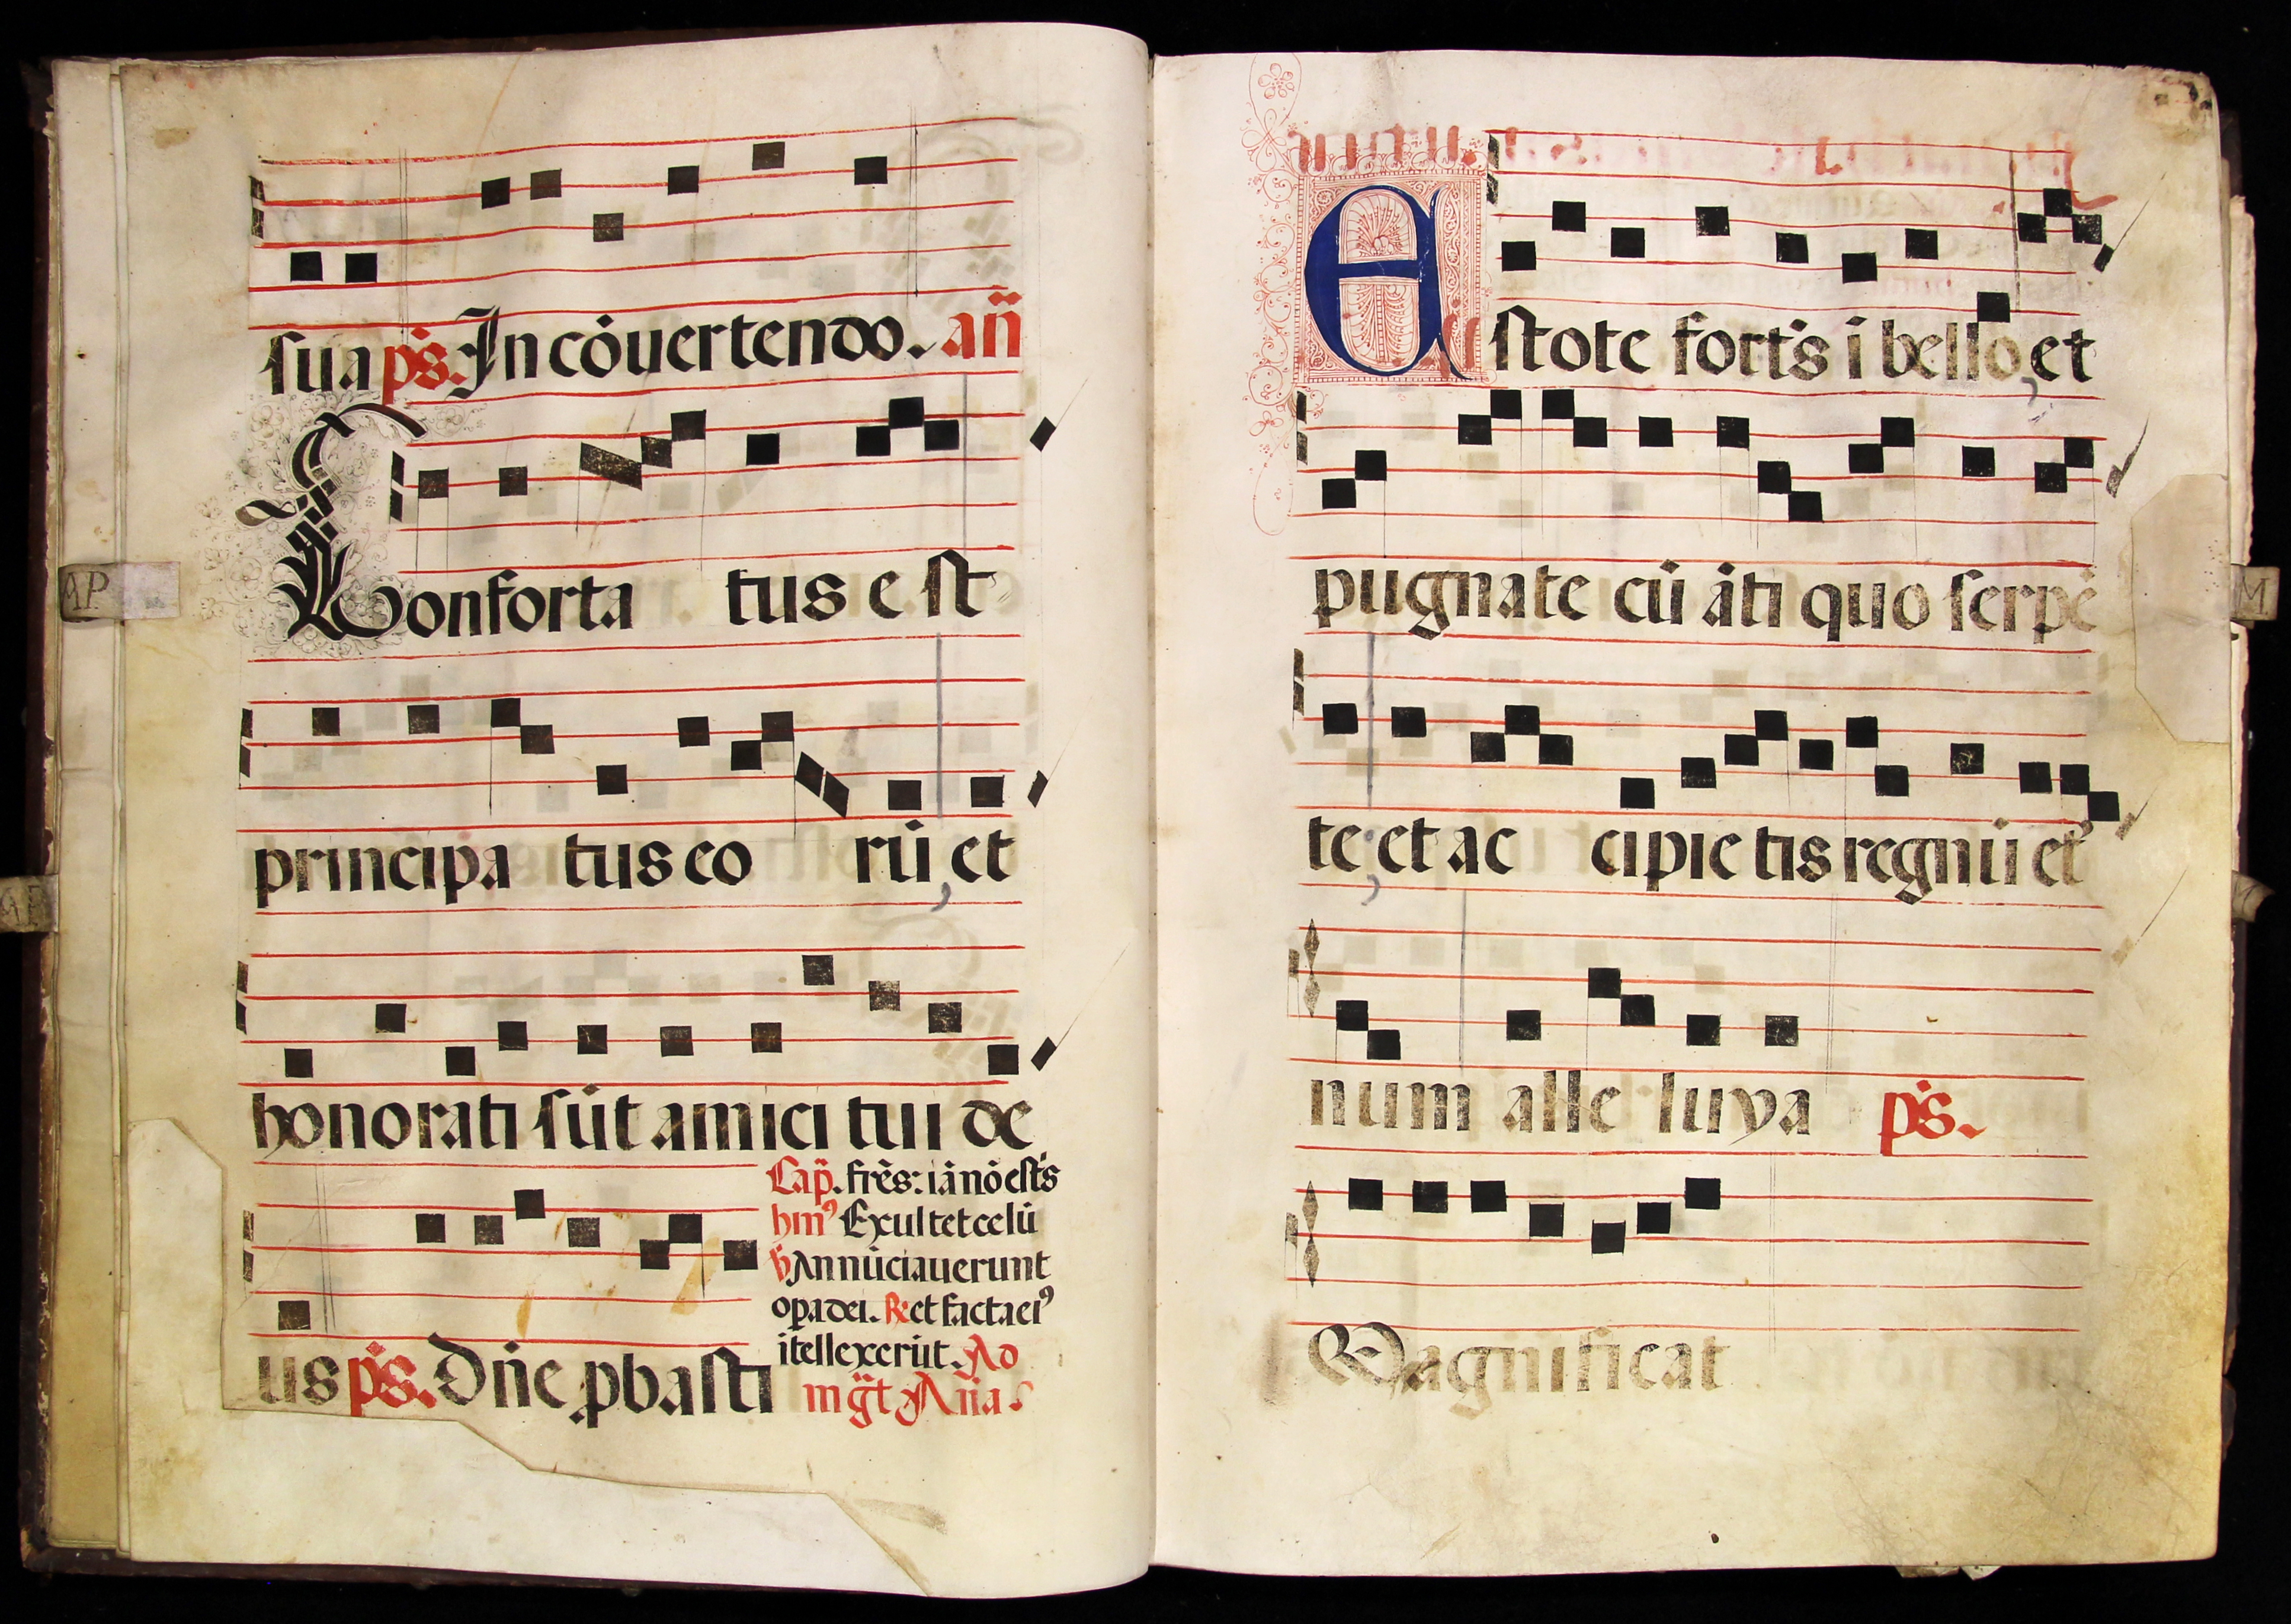 sua ps. In cōuertendo. an̄
Conforta tus e st
principa tus eo rū, et
honorati sūt amici tui de
us ps. Dn̄e pbasti
Cap. frēs: iā nō est's
hmꝰ Exultet celū
℣ Annūciauerunt
opa dei. ℟ et facta eiꝰ
ītellexerūt. Ad
mḡt Añā
Estote fort's ī bello, et
pugnate cū āti quo serpē
te, et ac cipie tis regnū et
num alle luya ps.
Magnificat
AP
M